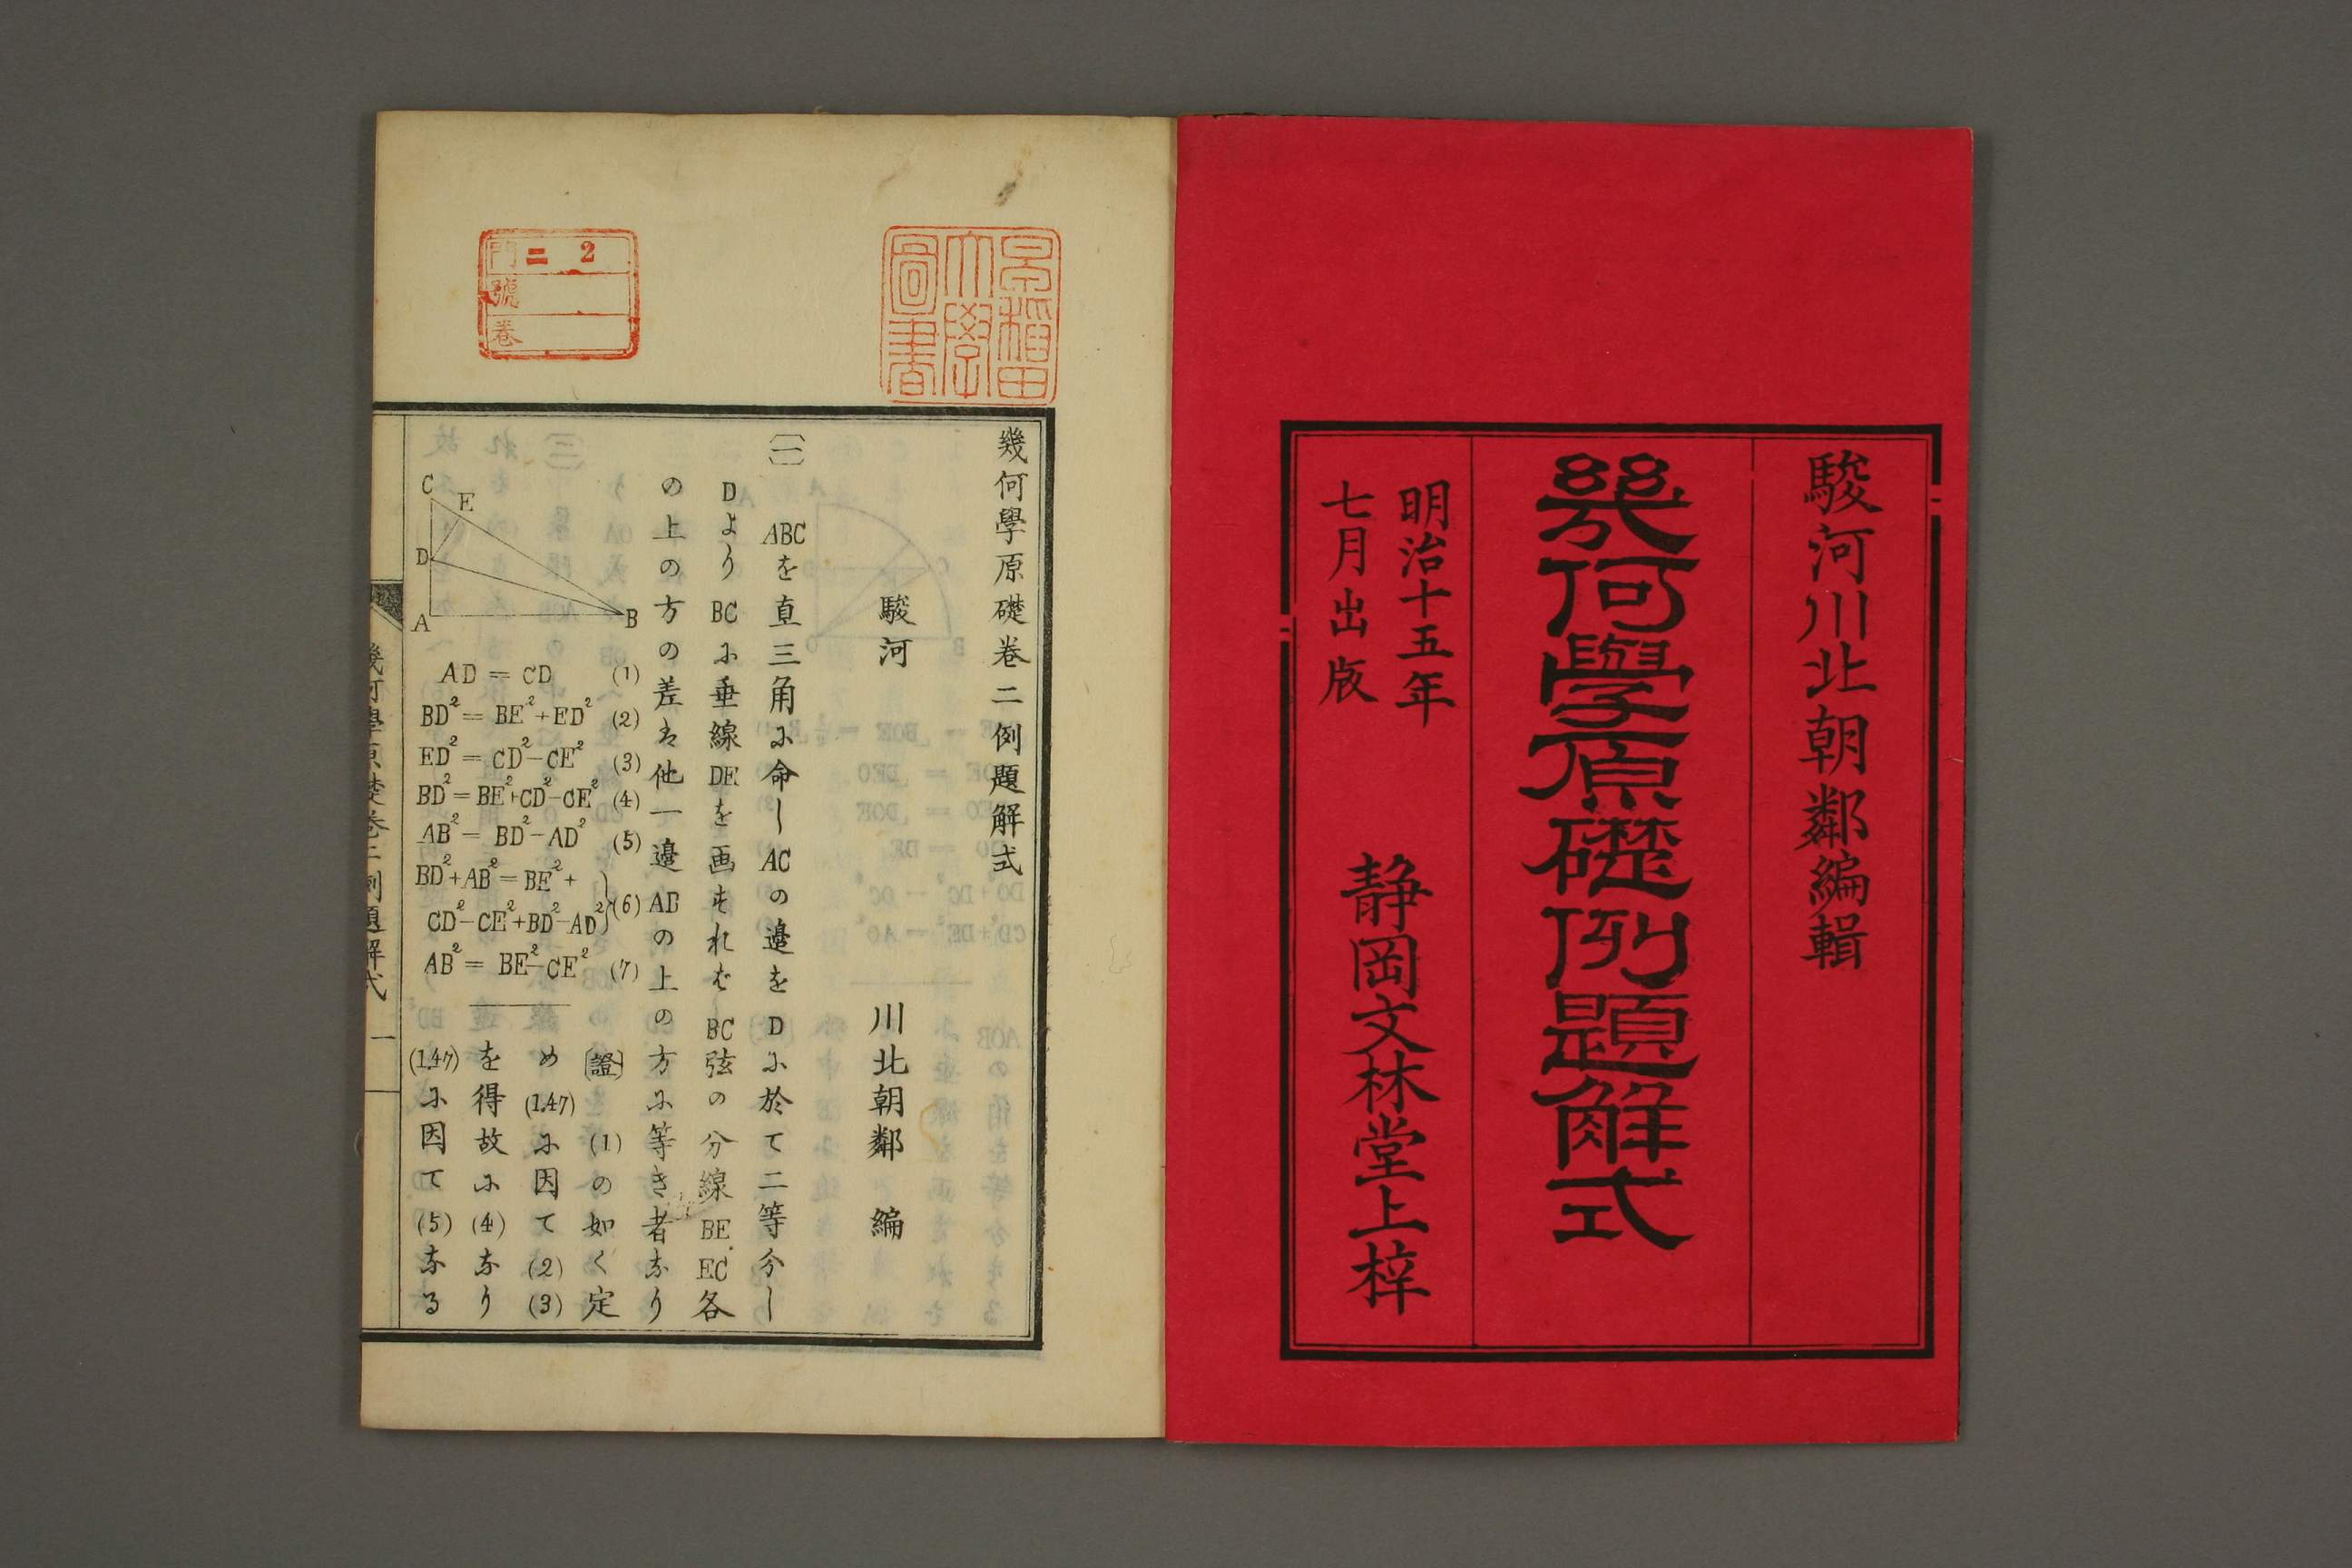 駿河川北朝鄰編輯
幾何學原礎例題解式
明治十五年
七月出版
静岡文林堂上梓
早稲田
大學
圖書
門二 2
號
卷
幾何學原礎卷二例題解式
駿河 川北朝鄰 編
〔一〕 ABCを直三角に命しACの邉をDに於て二等分し
DよりBCに垂線DEを画すればBC弦の分線BE.EC各
の上の方の差は他一邉ABの上の方に等き者なり
C
E
D
A
B
AD = CD (1)
BD² = BE² + ED² (2)
ED² = CD² - CE² (3)
BD² = BE² + CD² - CE² (4)
AB² = BD² - AD² (5)
BD² + AB² = BE² +
CD² - CE² + BD² - AD² } (6)
AB² = BE² - CE² (7)
〔證〕 (1)の如く定
め(1.47)に因て(2)(3)
を得故に(4)なり
(1.47)に因て(5)なる
幾何學原礎卷二例題解式 一